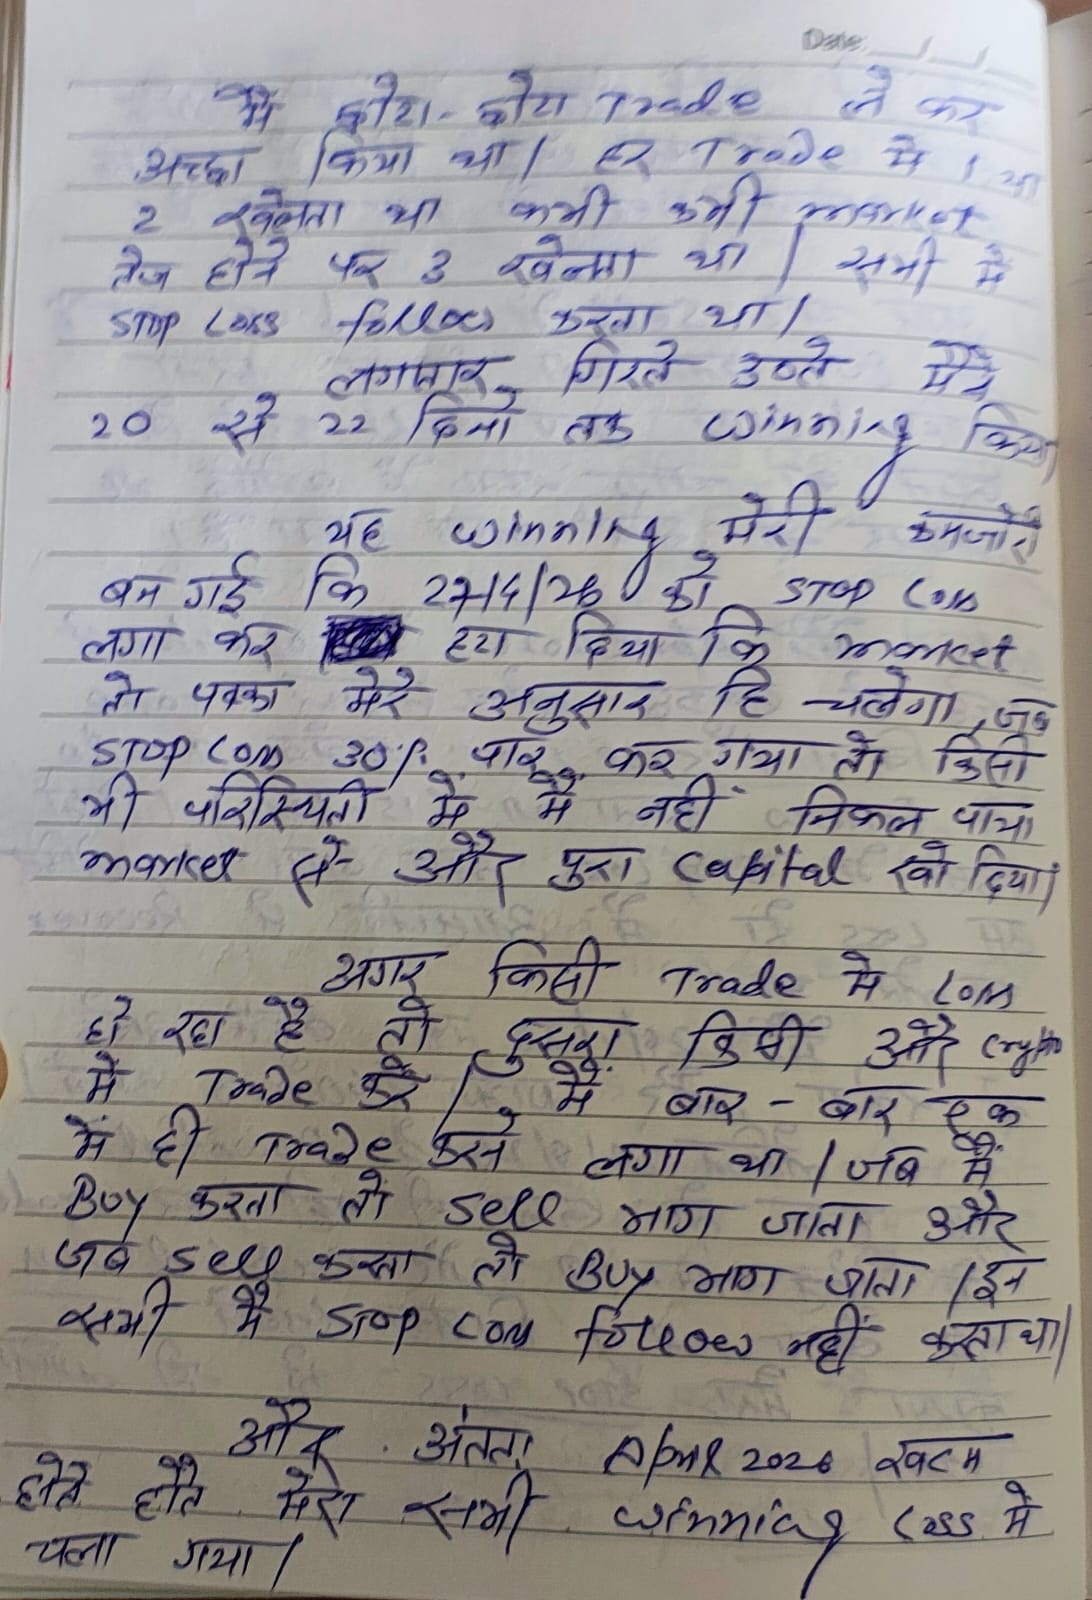 Date __/__/__
मैं छोटा-छोटा Trade ले कर
अच्छा किया था। हर Trade मे 1 या
2 खेलता था कभी कभी market
तेज होने पर 3 खेलता था। सभी मे
STOP Loss follow करता था।
लगातार गिरते उठते मैंने
20 से 22 दिनो तक winning किया
यह winning मेरी कमजोरी
बन गई कि 27/4/26 को STOP Loss
लगा कर हटा दिया कि market
तो पक्का मेरे अनुसार हि चलेगा, जब
STOP Loss 30% पार कर गया तो किसी
भी परिस्थिती में मैं नहीं निकल पाया
market से और पुरा capital खो दिया।
अगर किसी Trade मे Loss
हो रहा है तो दुसरा किसी और crypto
में Trade करें। मैं बार-बार एक
में ही Trade करने लगा था। जब मैं
Buy करता तो sell भाग जाता और
जब sell करता तो Buy भाग जाता। इन
सभी मैं STOP Loss follow नहीं करता था।
और अंततः April 2026 खत्म
होते होते मेरा सभी winning Loss मे
चला गया।